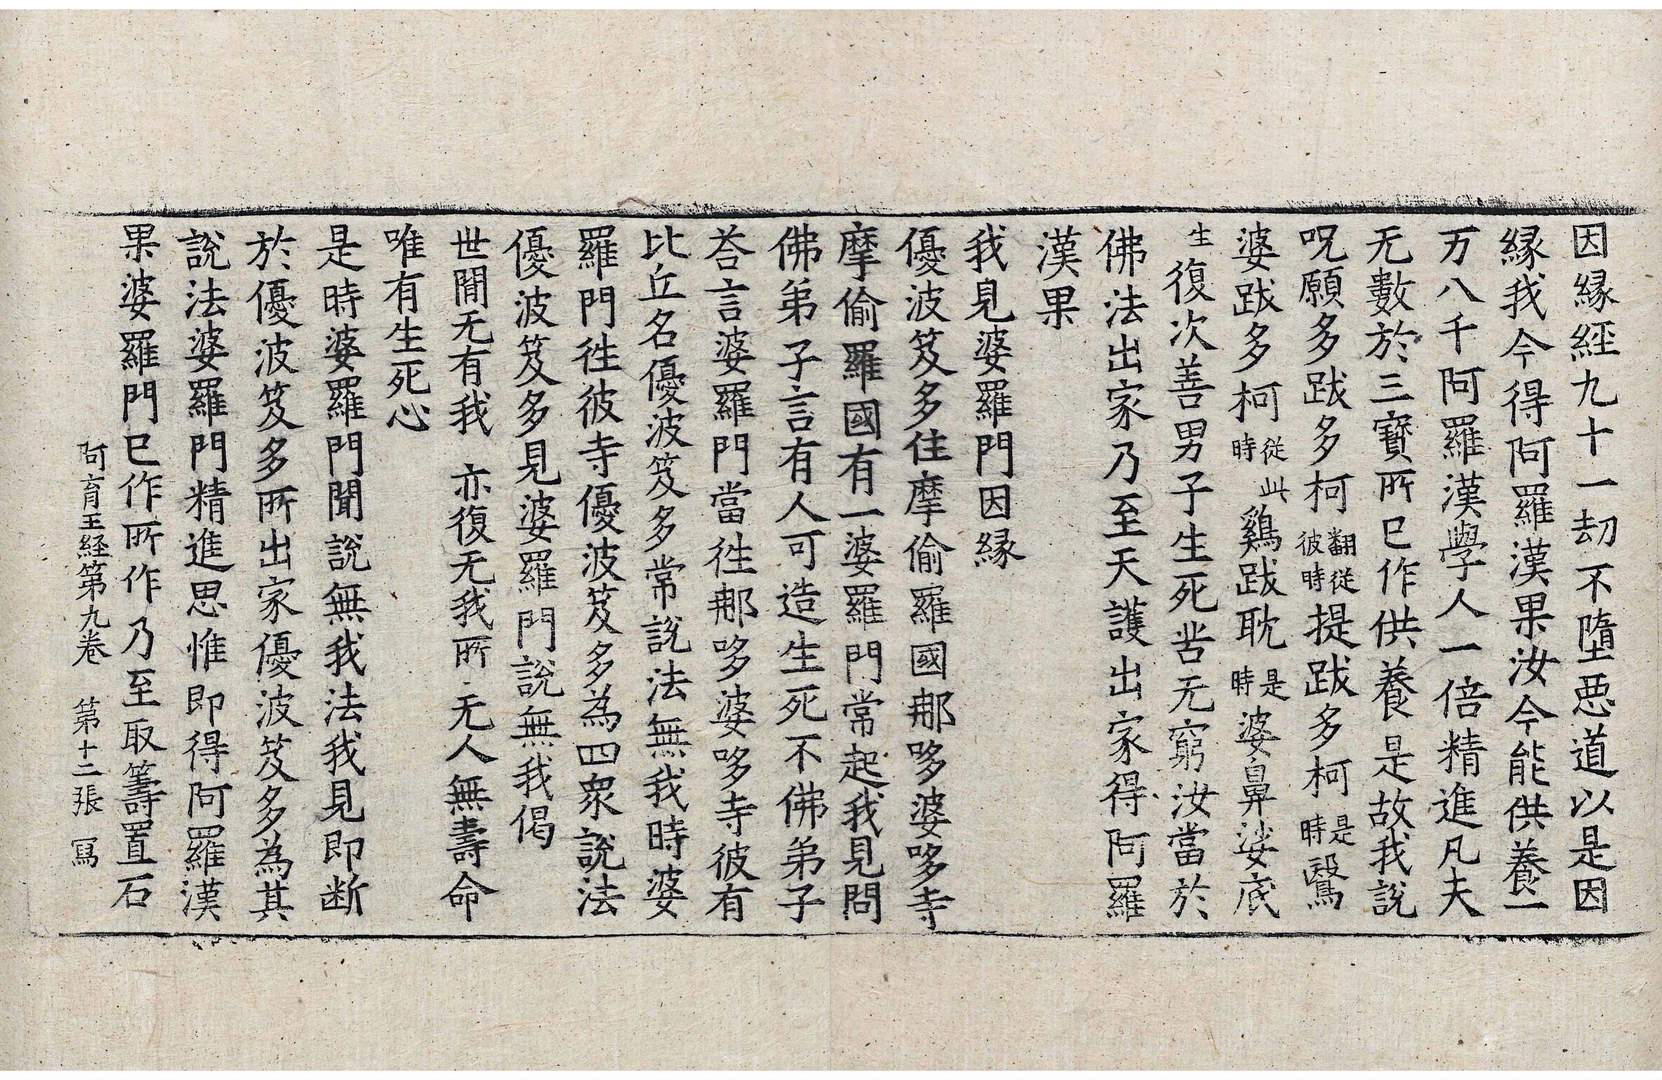 因縁經九十一劫不墮惡道以是因
縁我今得阿羅漢果汝今能供養一
万八千阿羅漢學人一倍精進凡夫
无數於三寶所已作供養是故我說
呪願多跋多柯翻從彼時提跋多柯是時鷖
婆跋多柯從此時鷄跋耽是時婆鼻娑底
生復次善男子生死苦无窮汝當於
佛法出家乃至天護出家得阿羅
漢果
我見婆羅門因縁
優波笈多住摩偷羅國那哆婆哆寺
摩偷羅國有一婆羅門常起我見問
佛弟子言有人可造生死不佛弟子
荅言婆羅門當徃那哆婆哆寺彼有
比丘名優波笈多常說法無我時婆
羅門徃彼寺優波笈多為四衆說法
優波笈多見婆羅門說無我偈
世間无有我 亦復无我所 无人無壽命
唯有生死心
是時婆羅門聞說無我法我見即断
於優波笈多所出家優波笈多為其
說法婆羅門精進思惟即得阿羅漢
果婆羅門已作所作乃至取籌置石
阿育王経第九卷 第十二張 冩